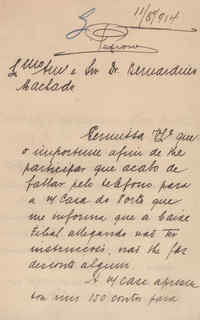 11/5/914
Illmo Exmo Snr Dr. Bernardino
Machado
Permitta V. Exª que
o importune afim de lhe
participar que acabo de
fallar pelo telefone para
a m/ Casa do Porto que
me informa que a Caixa
Filial allegando não ter
instrucções, não lhe faz
desconto algum.
A m/ casa apresen
tou uns 150 contos para